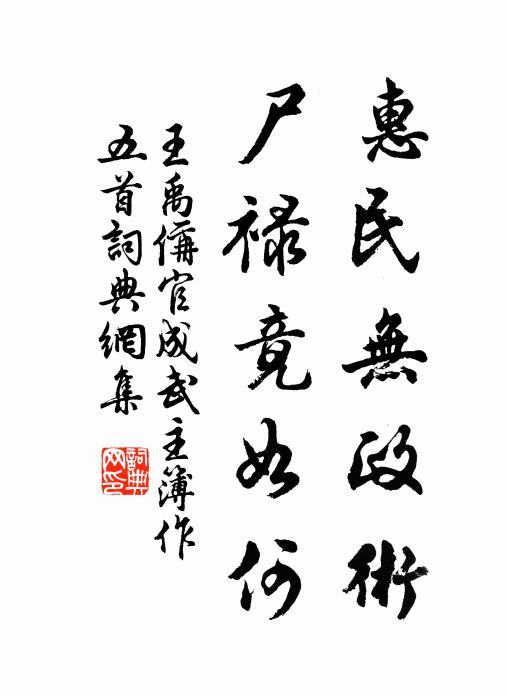 惠民無政術
尸祿竟如何
王禹偁官成武主簿作
五首詞典網集
詞典网印